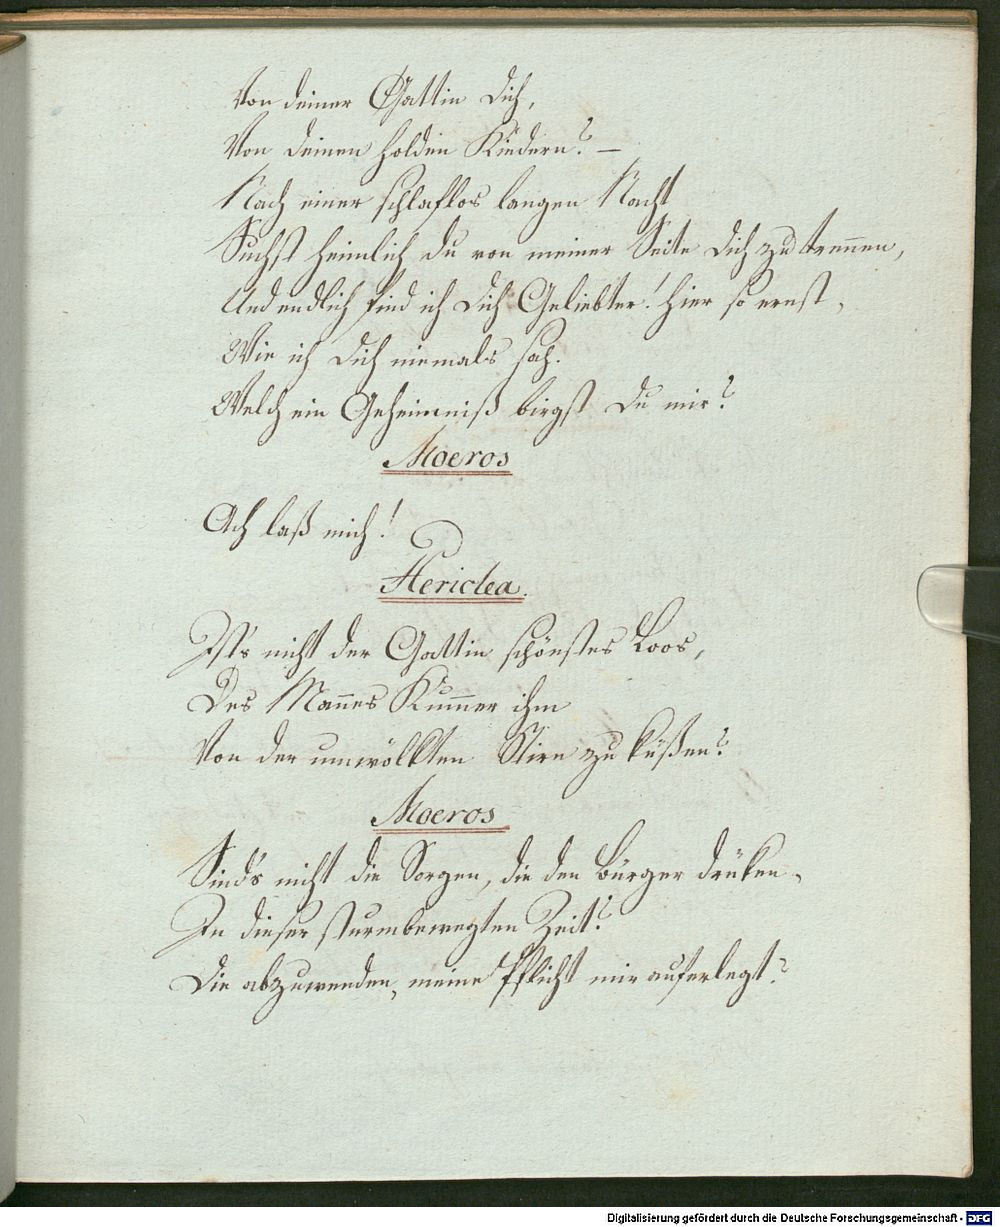 Von deiner Gattin dich,
Von deinen holden Kindern? —
Nach einer schlaflos langen Nacht
Suchst heimlich du von meiner Seite dich zu trennen,
Und endlich find ich dich Geliebter! hier so ernst,
Wie ich dich niemals sah.
Welch ein Geheimniß birgst du mir?
Moeros
Ach laß mich!
Hericlea.
Ist's nicht der Gattin schönstes Loos,
Des Mannes Kummer ihm
Von der umwölkten Stirn zu küßen?
Moeros
Sind's nicht die Sorgen, die den Bürger drüken,
In dieser sturmbewegten Zeit?
Die abzuwenden, meine Pflicht mir auferlegt?
Digitalisierung gefördert durch die Deutsche Forschungsgemeinschaft - DFG